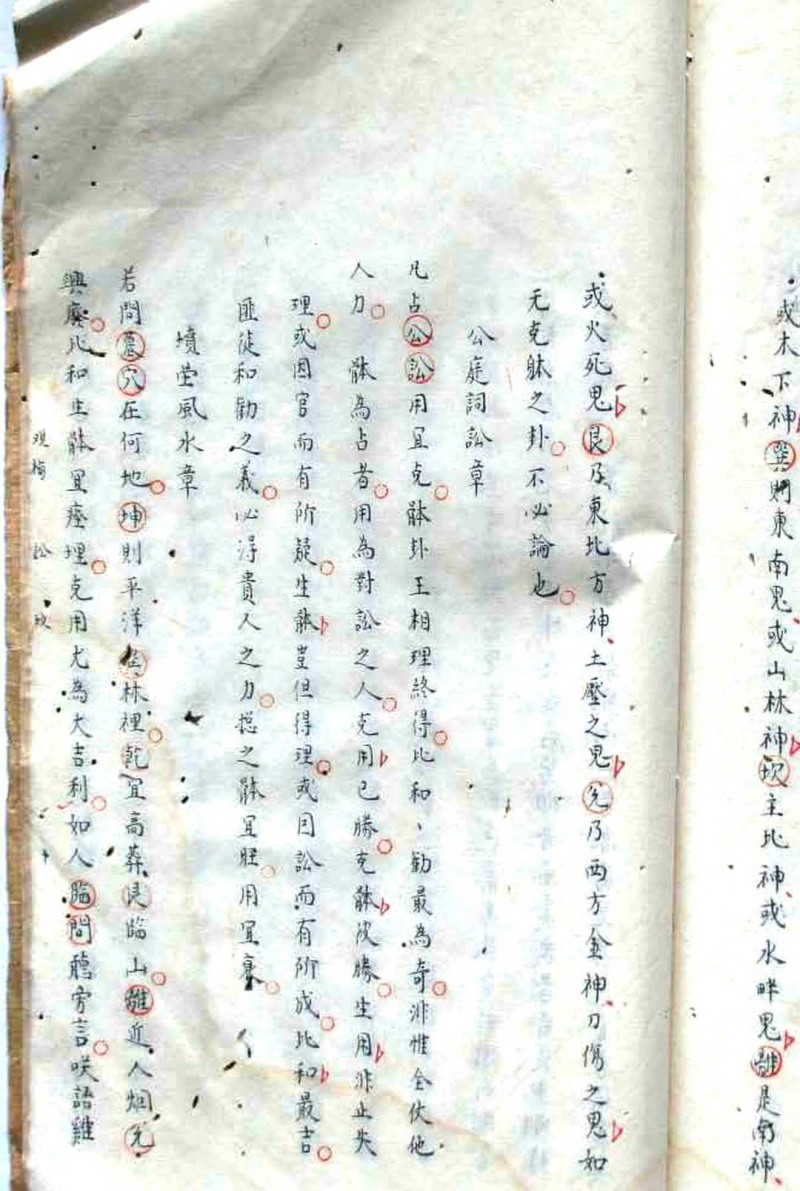 或木下神巽則東南鬼或山林神坎主北神或水畔鬼離是南神
或火死鬼艮乃東北方神土壓之鬼兊乃西方金神刀傷之鬼如
无克躰之卦不必論也
公庭詞訟章
凡占公訟用宜克躰卦王相理終得比和勸最為奇非惟全仗他
人力 躰為占者用為對訟之人克用己勝克躰彼勝生用非止失
理或因官而有所疑生躰豈但得理或因訟而有所成比和最吉
匪徒和勸之義必得貴人之力揔之躰宜旺用宜衰
墳塋風水章
若問墓穴在何地坤則平洋林裡乾宜高葬艮臨山離近人烟兊
興廢比和生躰宜塟埋克用尤為大吉利如人臨問聽旁言咲語雞